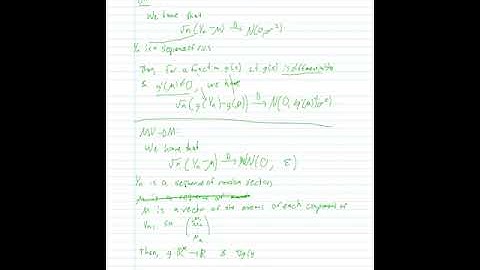 We have that
√n (Yn − μ) →D N(0, σ²)
Yn is a sequence of r.v.s
Then for a function g(x) st g(x) is differentiable
& g'(μ) ≠ 0, we have
√n (g(Yn) − g(μ)) →D N(0, g'(μ)² σ²)
MV-DM:
We have that
√n (Yn − μ) →D N(0, Σ)
Yn is a sequence of random vectors
μ is a vector of the means of each component of
Yn, so
Then, g: → & ∇g(y